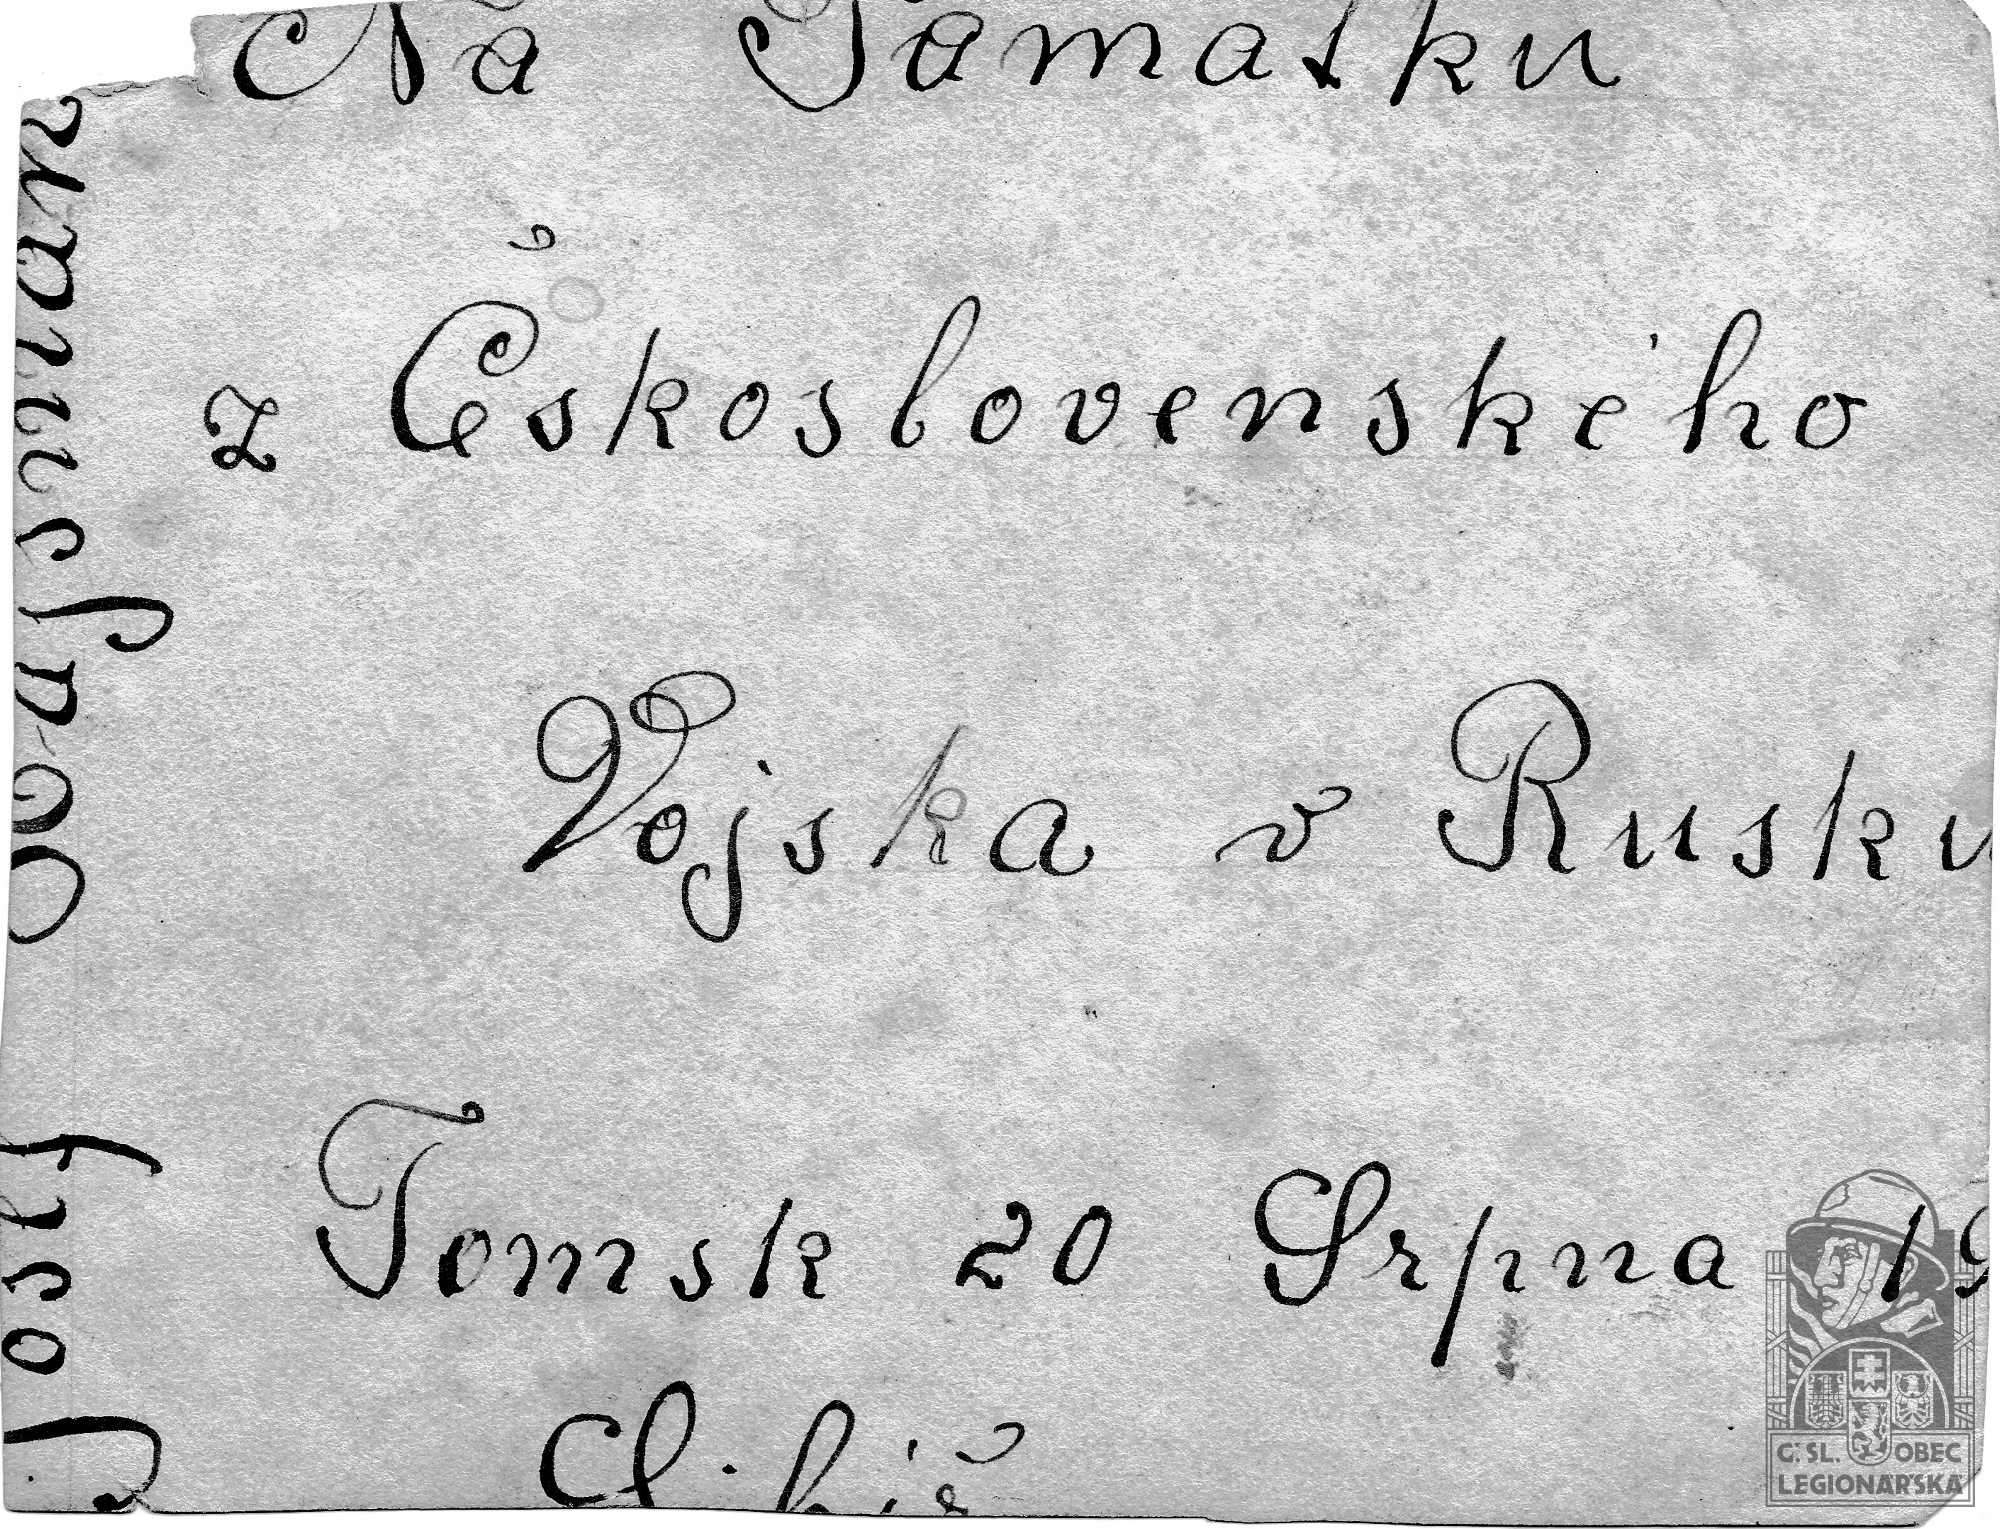 Na Pamatku
z Československého
Vojska v Rusku
Tomsk 20 Srpna 19
Sibiř
Č. SL. OBEC
LEGIONÁŘSKÁ